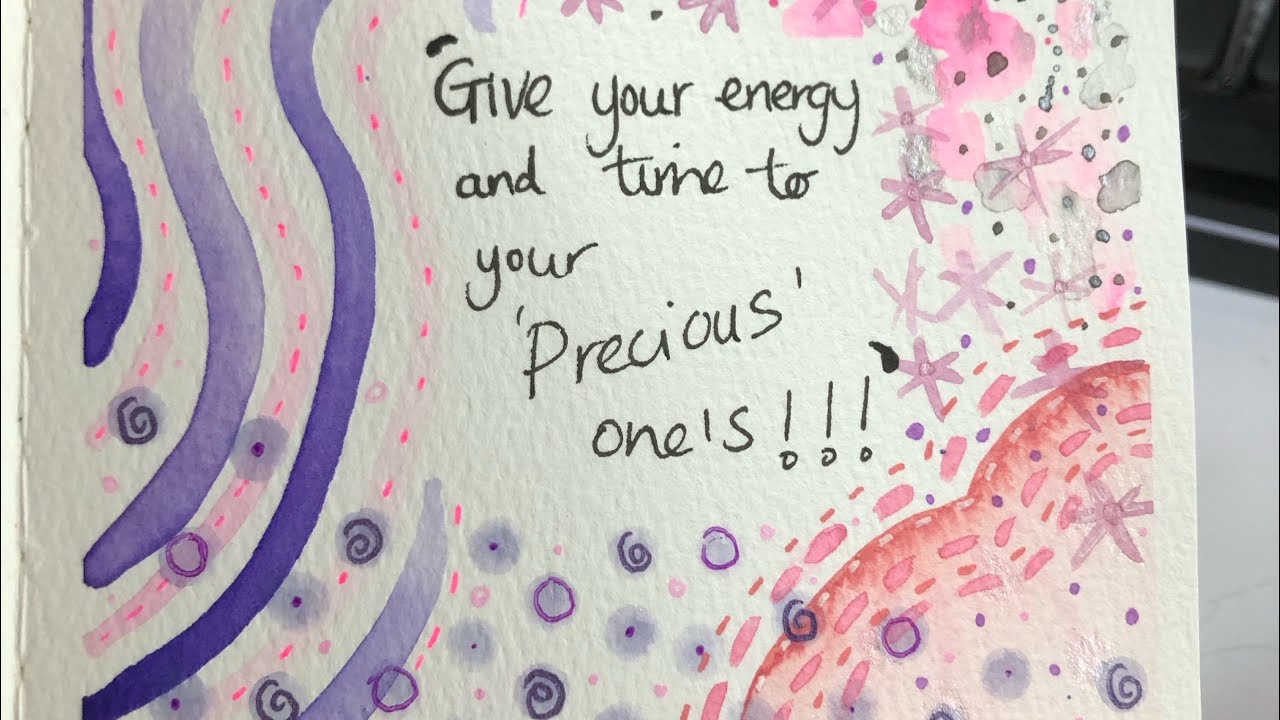 "Give your energy
and time to
your
'Precious'
one's!!!"